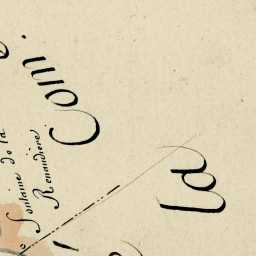 Com.
la
Fontaine de la
Renaudiere